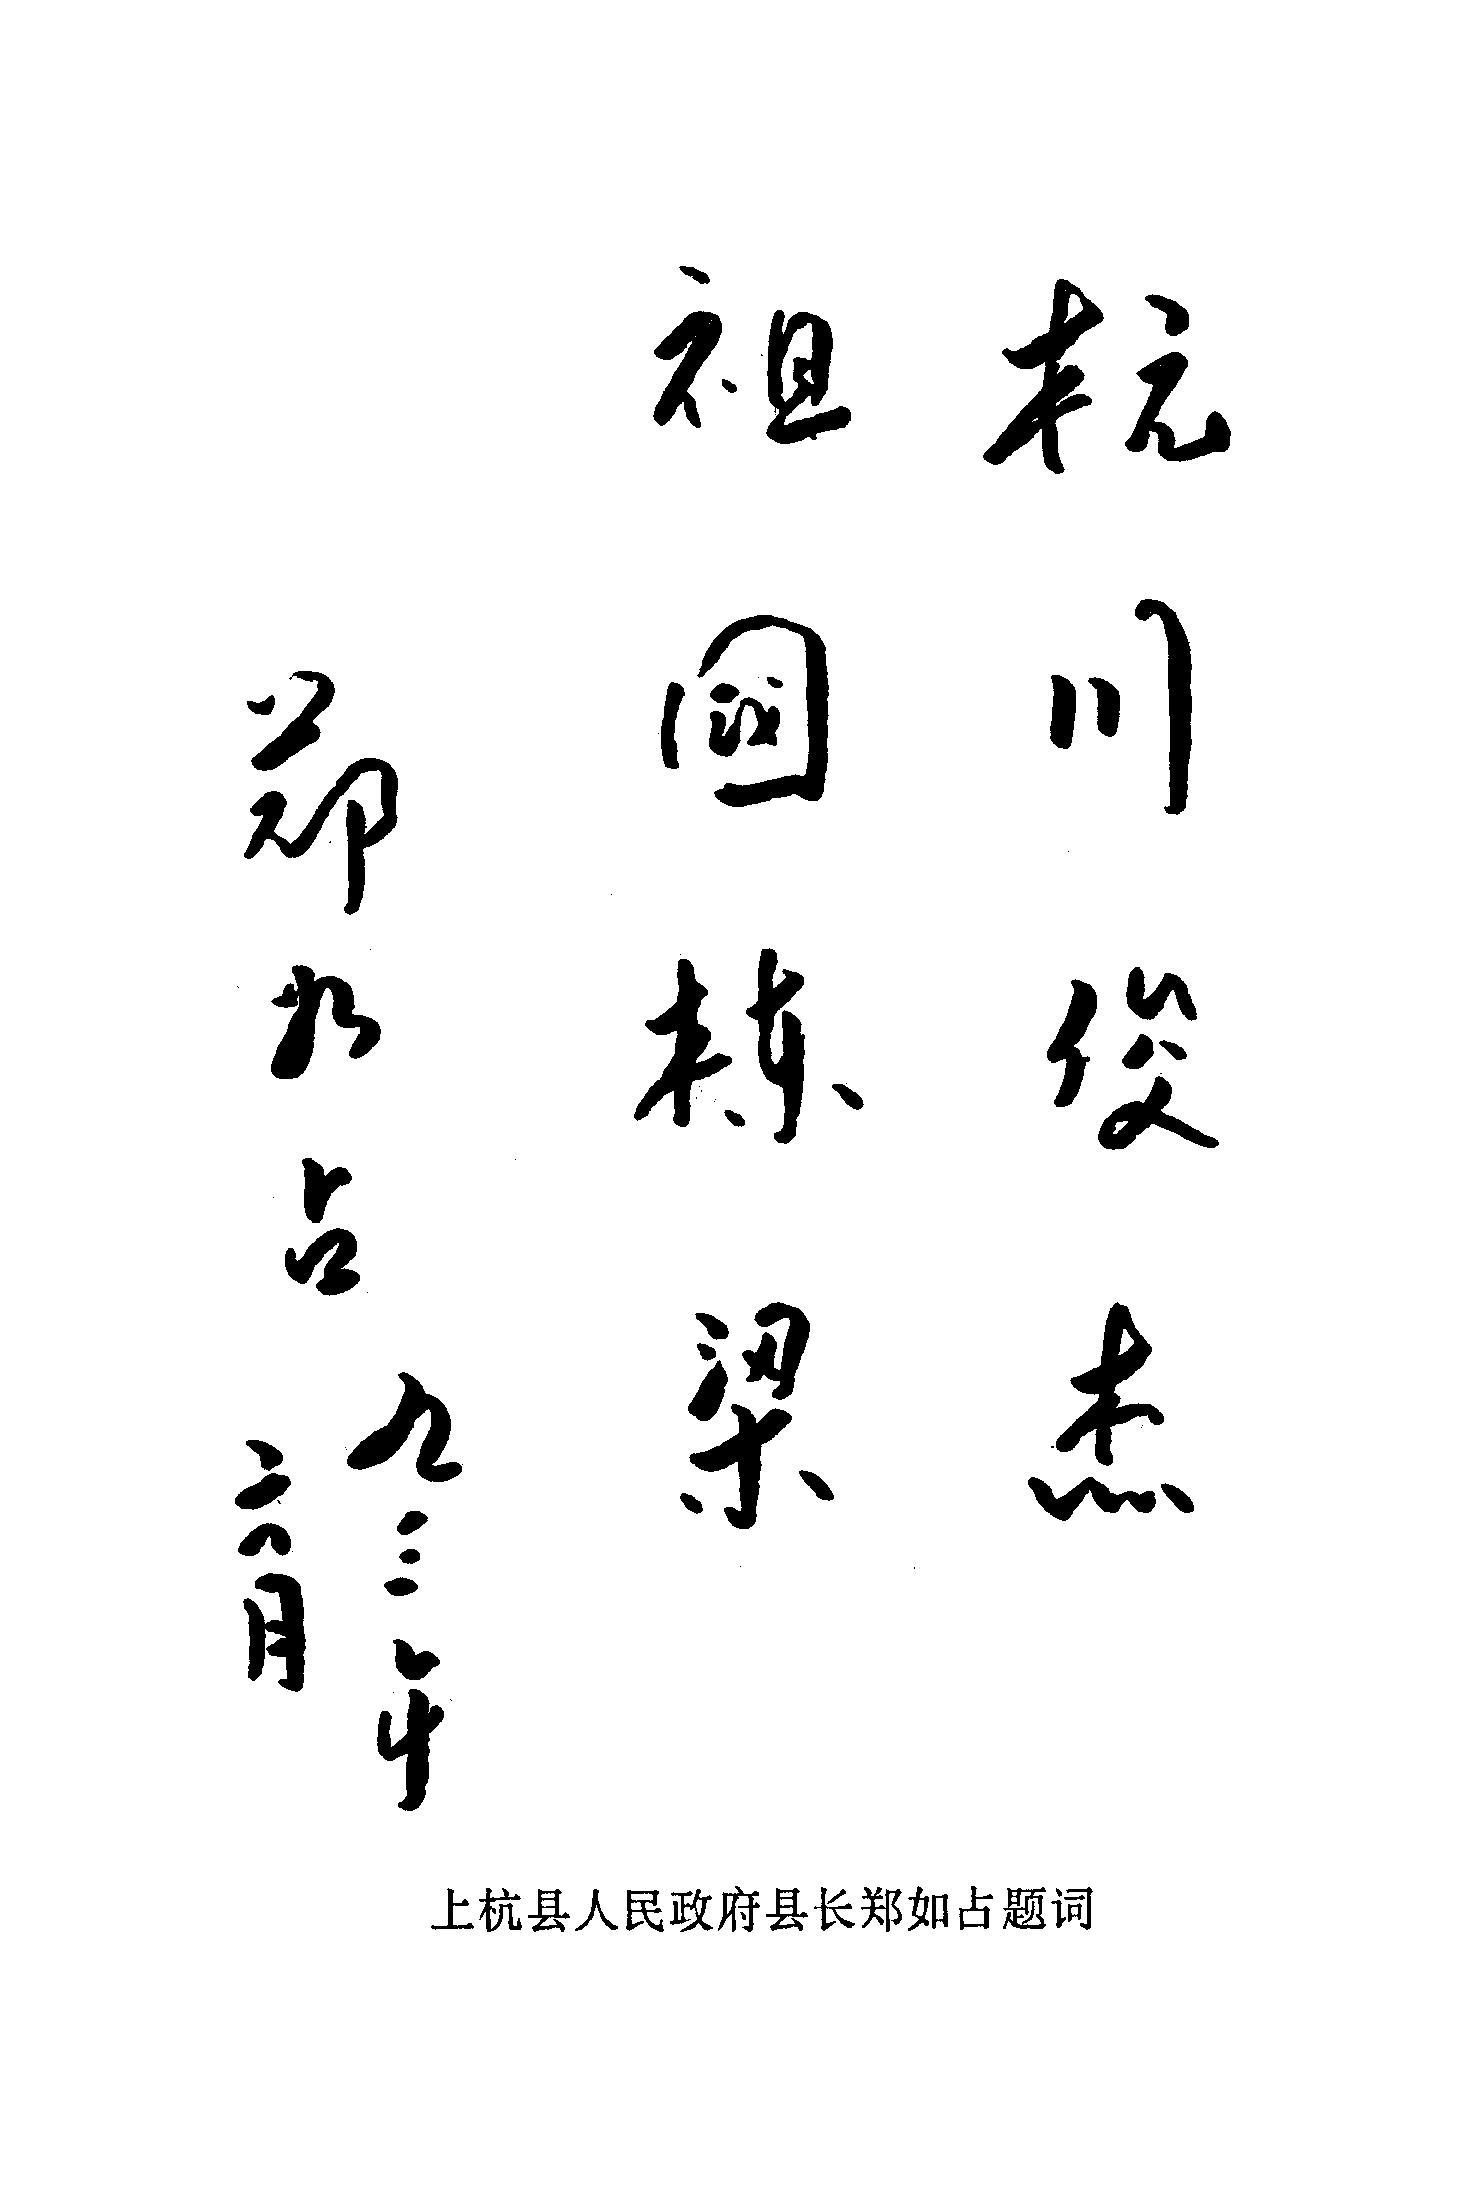 杭川俊杰
祖國栋梁
郑如占
九三年
六月
上杭县人民政府县长郑如占题词